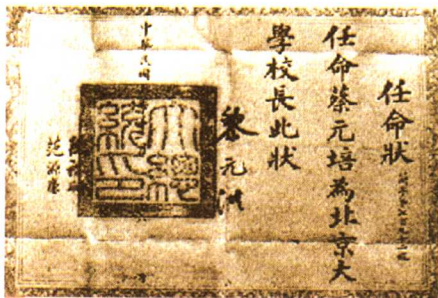 任命狀
任命蔡元培為北京大
學校長此狀
黎元洪
中華民國
范源廉